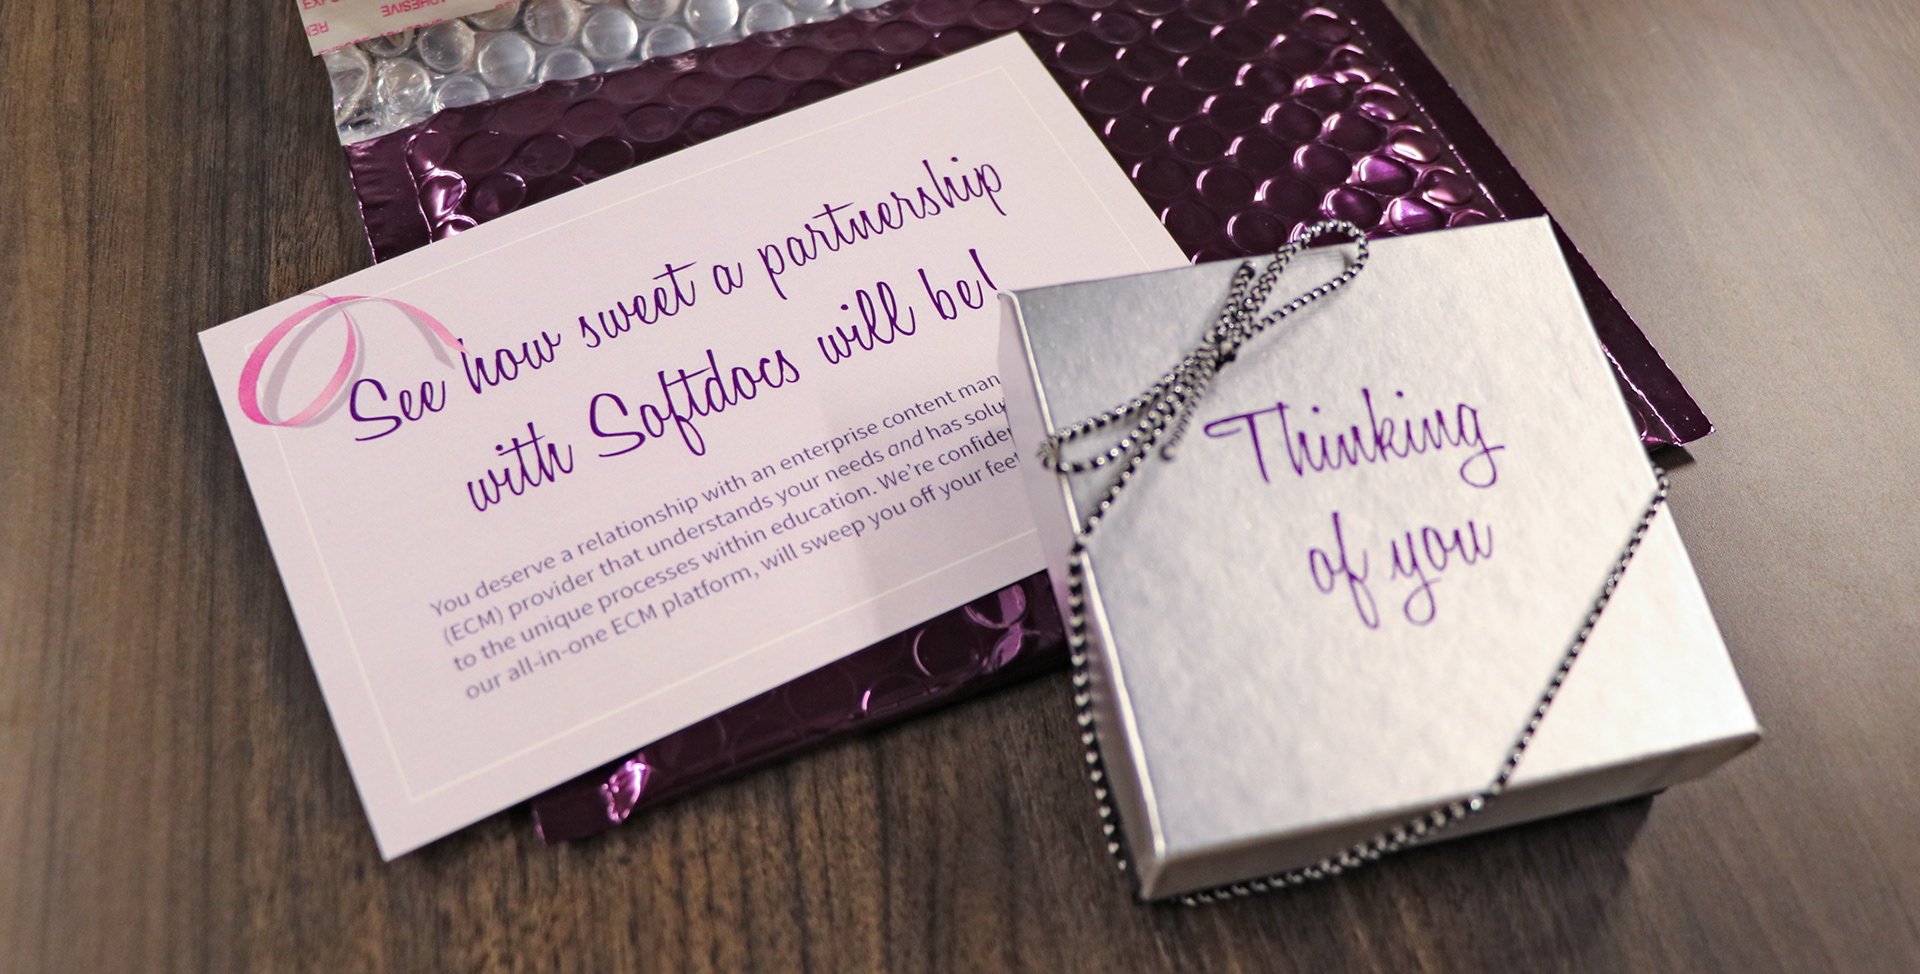 ADHESIVE
See how sweet a partnership
with Softdocs will be!
You deserve a relationship with an enterprise content man
(ECM) provider that understands your needs and has solu
to the unique processes within education. We're confide
our all-in-one ECM platform, will sweep you off your feet
Thinking
of you